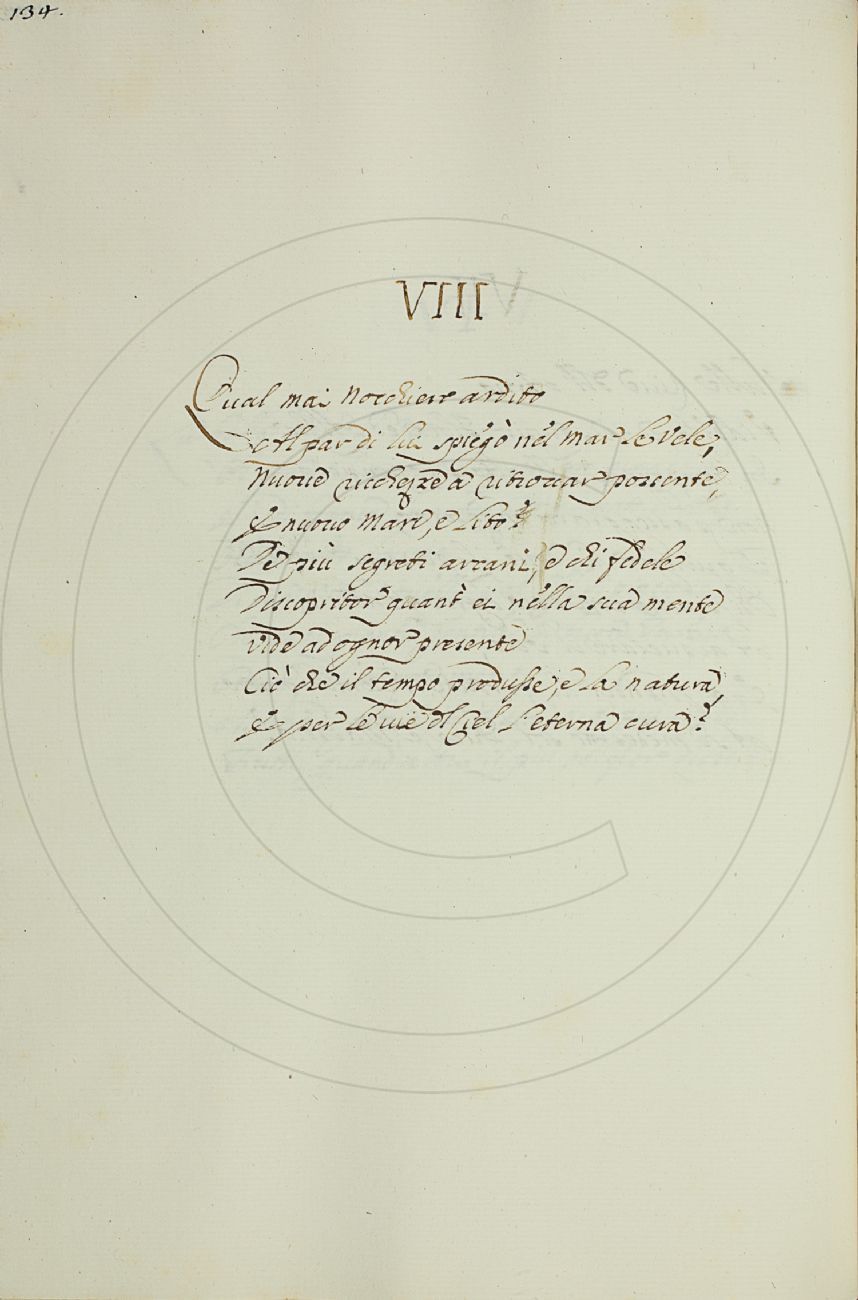 134.
VIII
Qual mai Nocchiere ardito
Al par di lui spiegò nel mar le Vele,
Nuove ricchezze a ritrovar possente,
E nuovo Mare, e Lito?
De più segreti arcani, e chi fedele
Discopritor quant' ei nella sua mente
vide ad ognor presente
Ciò che il tempo produsse, e la natura,
E per le vie del Ciel l'eterna cura?